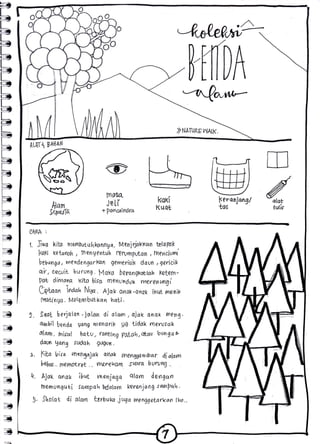 koleksi
BENDA
alam
NATURE WALK.
ALAT & BAHAN
Alam
semesta
mata
jeli
+ pancaindra
kaki
kuat
keranjang/
tas
alat
tulis
CARA :
1. Jiwa kita membutuhkannya. Menjejakkan telapak
kaki ketanah, menyentuh rerumputan, menciumi
bebunga, mendengarkan gemerisik daun, gericik
air, cecuit burung. Maka berangkatlah ketem-
pat dimana kita bisa menunduk merenungi
Ciptaan Indah Nya. Ajak anak-anak ikut menik
matinya. Melembutkan hati.
2. Saat berjalan-jalan di alam, ajak anak meng-
ambil benda yang menarik yg tidak merusak
alam. misal batu, ranting patah, atau bunga &
daun yang sudah gugur.
3. Kita bisa mengajak anak menggambar di alam
bebas.. memotret .. merekam suara burung.
4. Ajak anak ikut menjaga alam dengan
memunguti sampah kedalam keranjang sampah.
5. Sholat di alam terbuka juga menggetarkan lho..
7